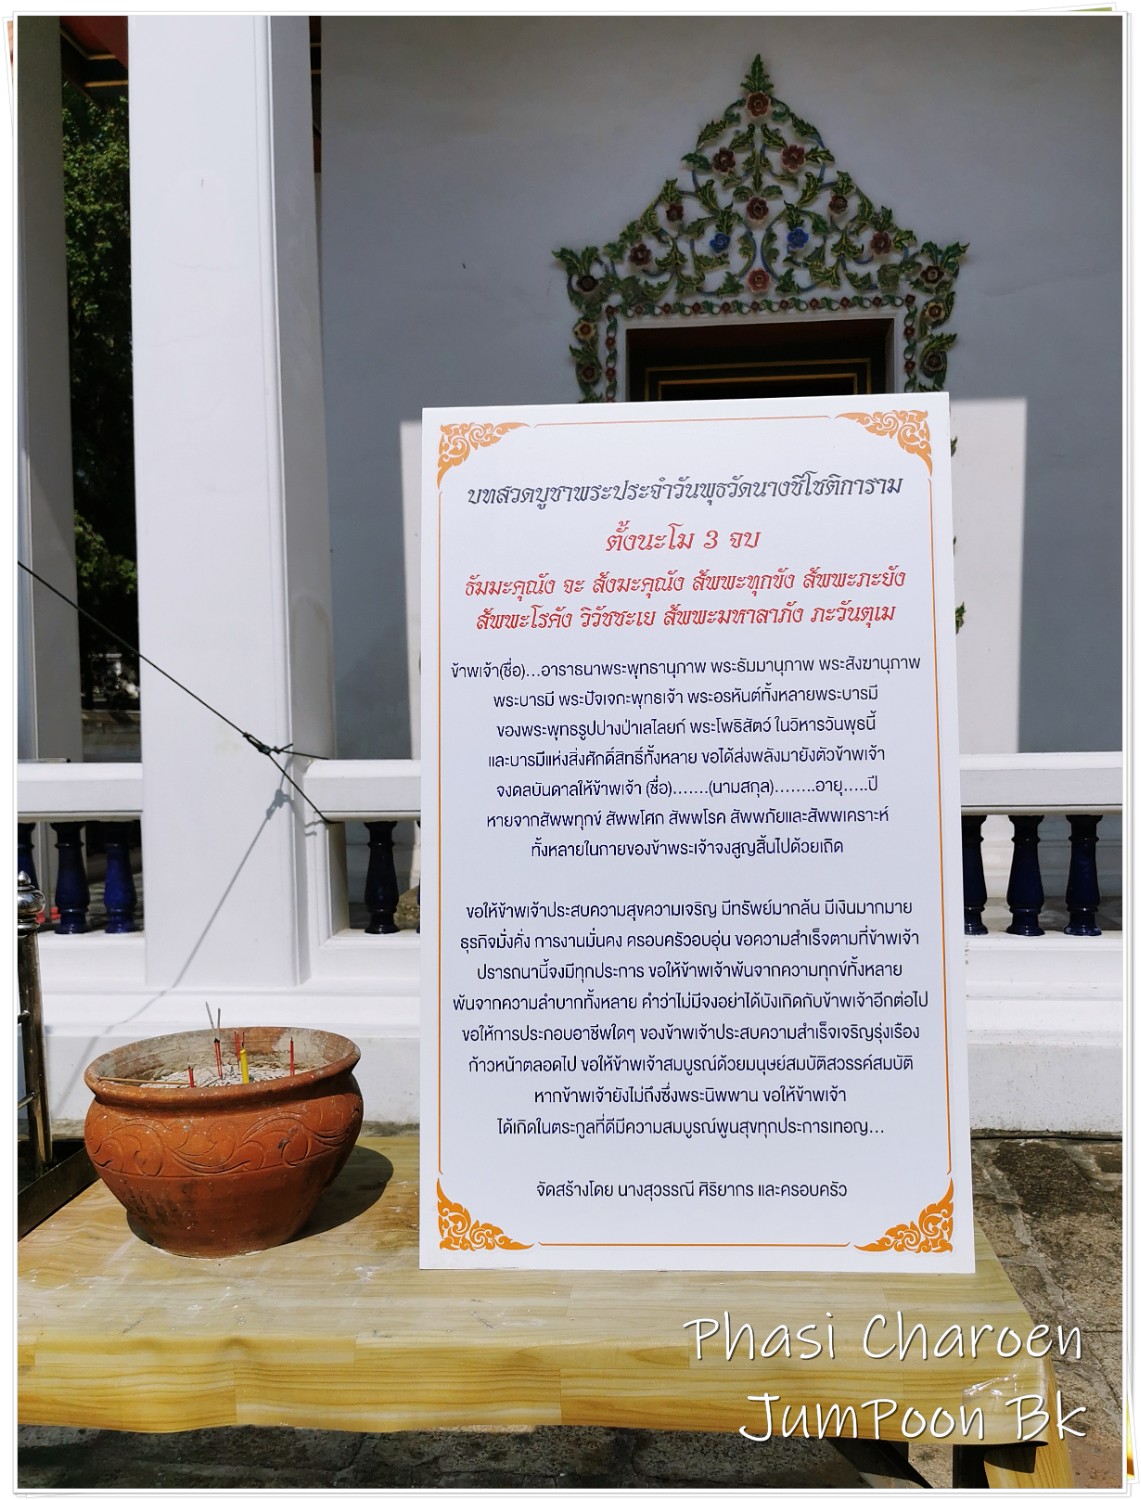 บทสวดบูชาพระประจำวันพุธวัดนางชีโชติการาม
ตั้งนะโม 3 จบ
ธัมมะคุณัง จะ สังมะคุณัง สัพพะทุกขัง สัพพะภะยัง
สัพพะโรคัง วิวัชชะเย สัพพะมหาลาภัง ภะวันตุเม
ข้าพเจ้า(ชื่อ)...อาราธนาพระพุทธานุภาพ พระธัมมานุภาพ พระสังฆานุภาพ
พระบารมี พระปัจเจกะพุทธเจ้า พระอรหันต์ทั้งหลายพระบารมี
ของพระพุทธรูปปางป่าเลไลยก์ พระโพธิสัตว์ ในวิหารวันพุธนี้
และบารมีแห่งสิ่งศักดิ์สิทธิ์ทั้งหลาย ขอได้ส่งพลังมายังตัวข้าพเจ้า
จงดลบันดาลให้ข้าพเจ้า (ชื่อ).......(นามสกุล)........อายุ.....ปี
หายจากสัพพทุกข์ สัพพโศก สัพพโรค สัพพภัยและสัพพเคราะห์
ทั้งหลายในกายของข้าพระเจ้าจงสูญสิ้นไปด้วยเถิด
ขอให้ข้าพเจ้าประสบความสุขความเจริญ มีทรัพย์มากล้น มีเงินมากมาย
ธุรกิจมั่งคั่ง การงานมั่นคง ครอบครัวอบอุ่น ขอความสำเร็จตามที่ข้าพเจ้า
ปรารถนานี้จงมีทุกประการ ขอให้ข้าพเจ้าพ้นจากความทุกข์ทั้งหลาย
พ้นจากความลำบากทั้งหลาย คำว่าไม่มีจงอย่าได้บังเกิดกับข้าพเจ้าอีกต่อไป
ขอให้การประกอบอาชีพใดๆ ของข้าพเจ้าประสบความสำเร็จเจริญรุ่งเรือง
ก้าวหน้าตลอดไป ขอให้ข้าพเจ้าสมบูรณ์ด้วยมนุษย์สมบัติสวรรค์สมบัติ
หากข้าพเจ้ายังไม่ถึงซึ่งพระนิพพาน ขอให้ข้าพเจ้า
ได้เกิดในตระกูลที่ดีมีความสมบูรณ์พูนสุขทุกประการเทอญ...
จัดสร้างโดย นางสุวรรณี ศิริยากร และครอบครัว
Phasi Charoen
JumPoon Bk